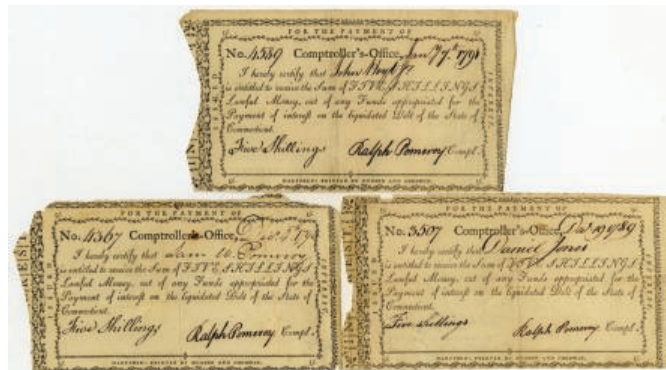 FOR THE PAYMENT OF
No. 4539 Comptroller's-Office, Jany 7th 1791
I hereby certify that John Hoyt Jr
is entitled to receive the Sum of FIVE SHILLINGS
Lawful Money, out of any Funds appropriated for the
Payment of interest on the liquidated Debt of the State of
Connecticut.
Five Shillings Ralph Pomeroy Compt.
HARTFORD: PRINTED BY HUDSON AND GOODWIN.
ISSUED
INTEREST
FOR THE PAYMENT OF
No. 4367 Comptroller's-Office, Dec.
I hereby certify that Pomeroy
is entitled to receive the Sum of FIVE SHILLINGS
Lawful Money, out of any Funds appropriated for the
Payment of interest on the liquidated Debt of the State of
Connecticut.
Five Shillings Ralph Pomeroy Compt.
HARTFORD: PRINTED BY HUDSON AND GOODWIN.
ISSUED
FOR THE PAYMENT OF
No. 3507 Comptroller's-Office, Dec 19 1789
I hereby certify that Daniel Jones
is entitled to receive the Sum of FIVE SHILLINGS
Lawful Money, out of any Funds appropriated for the
Payment of interest on the liquidated Debt of the State of
Connecticut.
Five Shillings Ralph Pomeroy Compt.
HARTFORD: PRINTED BY HUDSON AND GOODWIN.
ISSUED
INTEREST